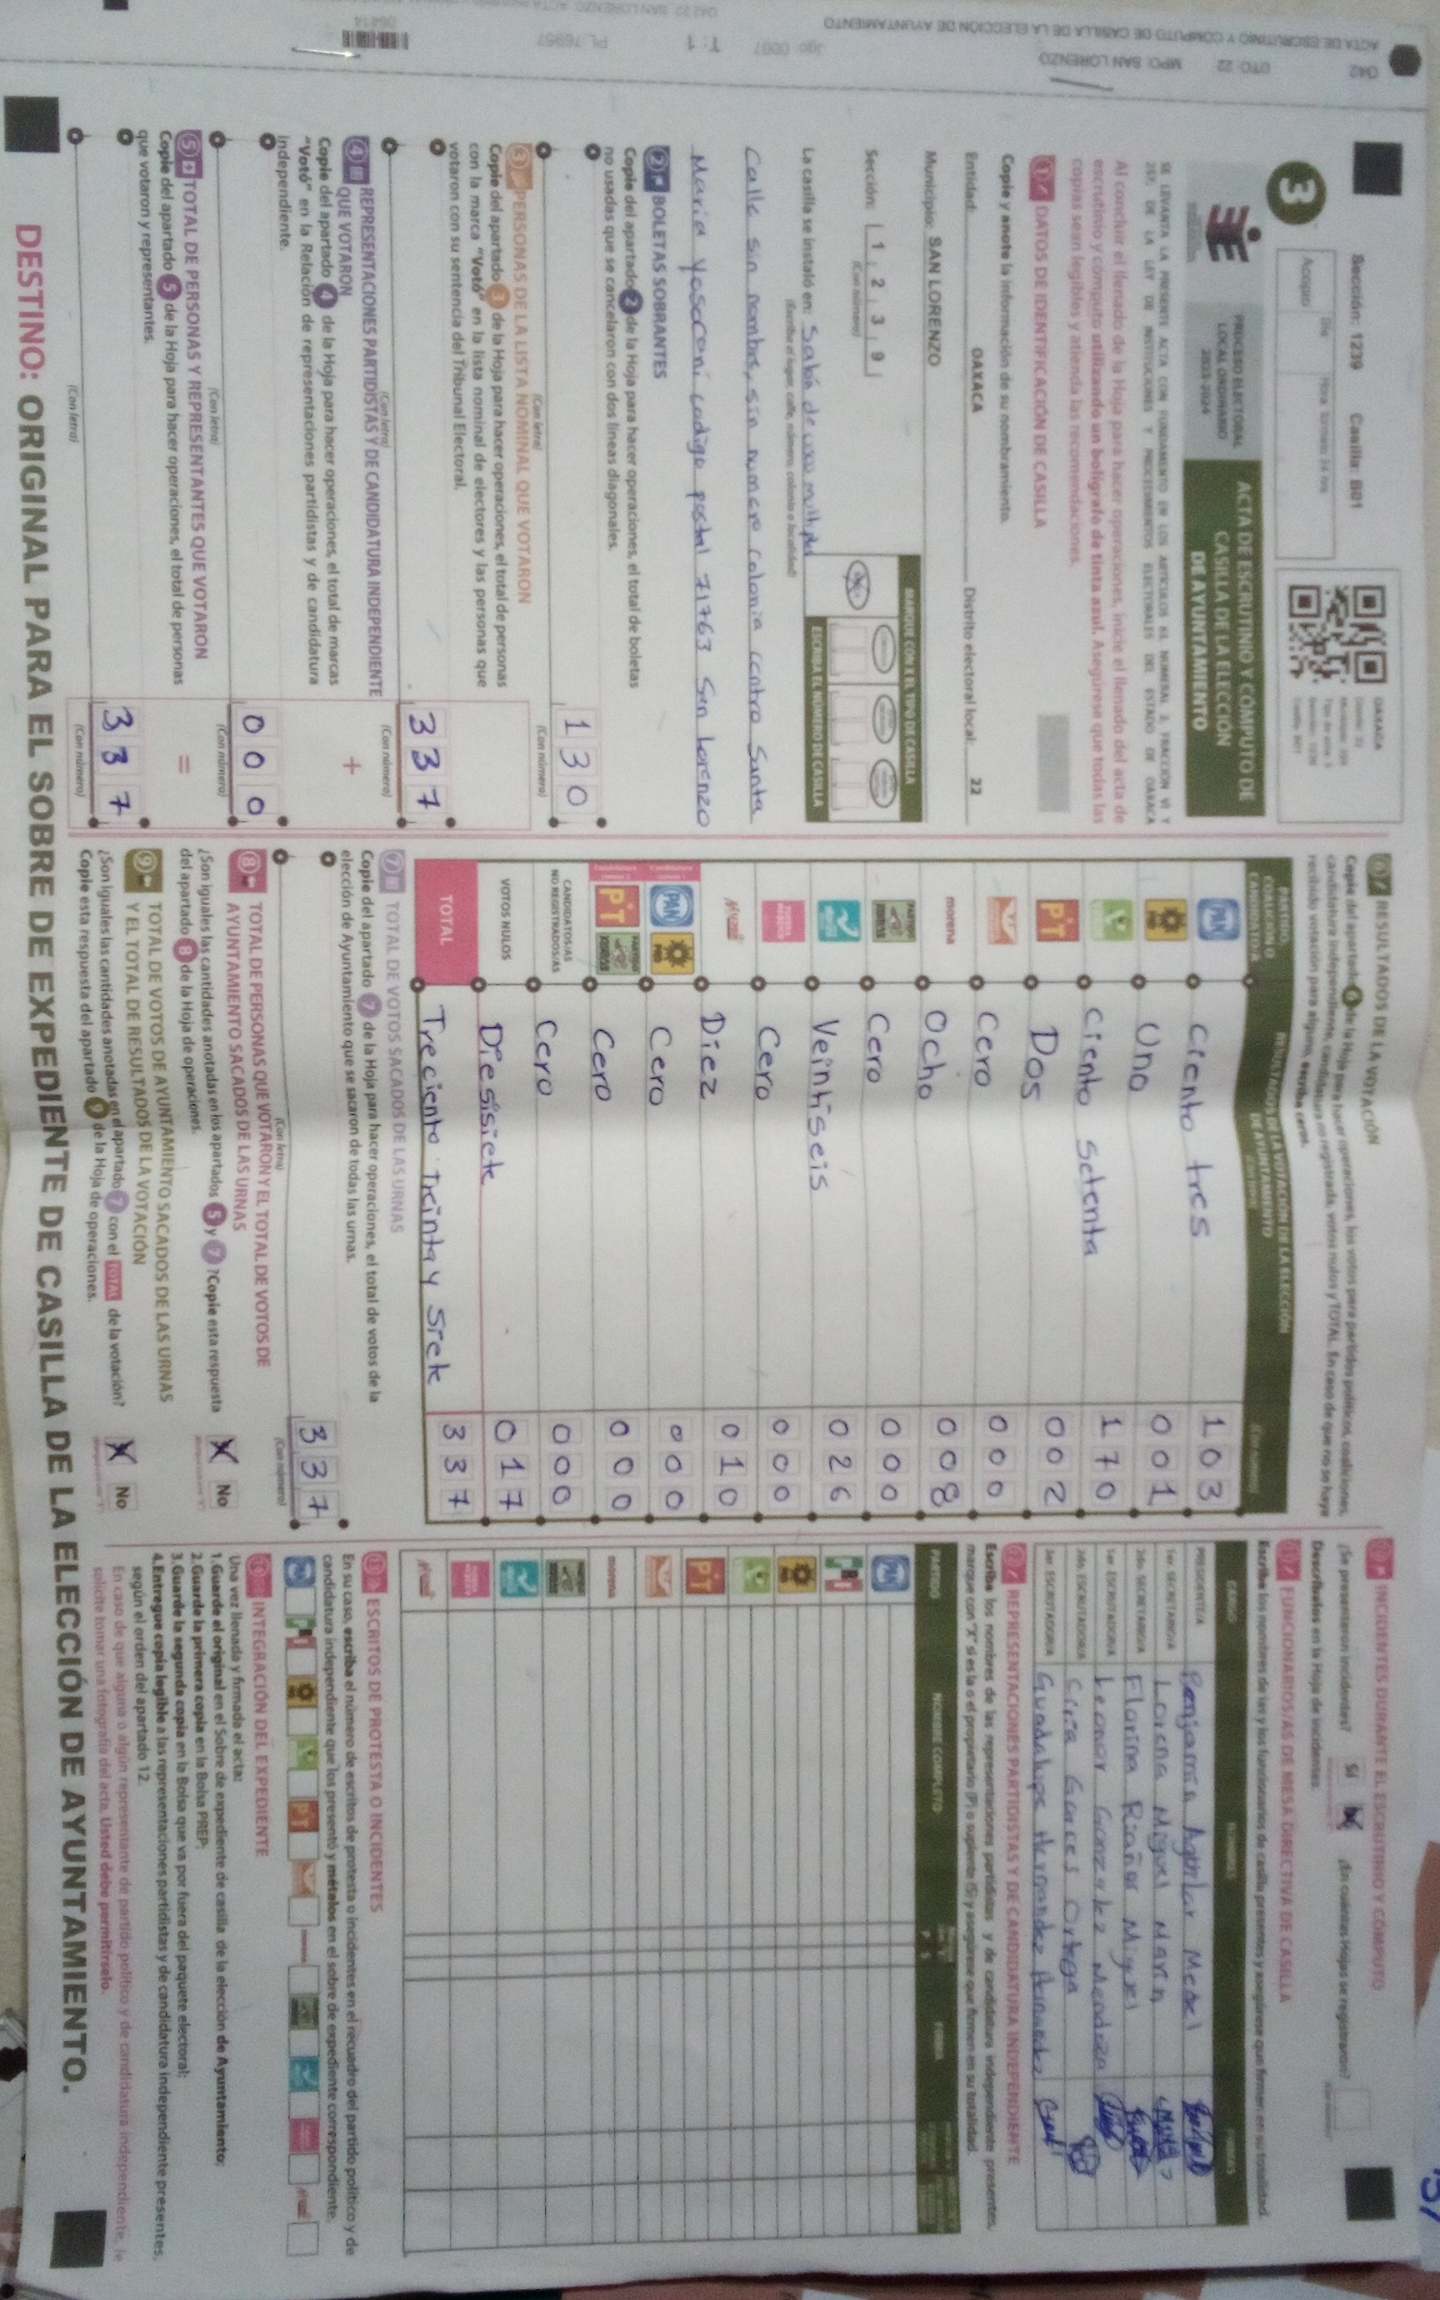 042 DTO: 22 MPO: SAN LORENZO
ACTA DE ESCRUTINIO Y CÓMPUTO DE CASILLA DE LA ELECCIÓN DE AYUNTAMIENTO
Sección: 1239 Casilla: B01
3
Acopio
PROCESO ELECTORAL
LOCAL ORDINARIO
2023-2024
ACTA DE ESCRUTINIO Y CÓMPUTO DE
CASILLA DE LA ELECCIÓN
DE AYUNTAMIENTO
Al concluir el llenado de la Hoja para hacer operaciones, inicie el llenado del acta de
escrutinio y cómputo utilizando un bolígrafo de tinta azul. Asegúrese que todas las
copias sean legibles y atienda las recomendaciones.
1 DATOS DE IDENTIFICACIÓN DE CASILLA
Copie y anote la información de su nombramiento.
Entidad: OAXACA Distrito electoral local: 22
Municipio: SAN LORENZO
Sección: 1 2 3 9
(Con número)
MARQUE CON X EL TIPO DE CASILLA
ESCRIBA EL NÚMERO DE CASILLA
La casilla se instaló en:
(Escriba el lugar, calle, número, colonia o localidad)
Calle sin nombre, sin numero colonia centro Santa
Maria Yosocani codigo postal 71763 San Lorenzo
2 BOLETAS SOBRANTES
Copie del apartado 2 de la Hoja para hacer operaciones, el total de boletas
no usadas que se cancelaron con dos líneas diagonales.
130
(Con letra) (Con número)
3 PERSONAS DE LA LISTA NOMINAL QUE VOTARON
Copie del apartado 3 de la Hoja para hacer operaciones, el total de personas
con la marca "Votó" en la lista nominal de electores y las personas que
votaron con su sentencia del Tribunal Electoral.
337
(Con letra) (Con número)
4 REPRESENTACIONES PARTIDISTAS Y DE CANDIDATURA INDEPENDIENTE
QUE VOTARON
Copie del apartado 4 de la Hoja para hacer operaciones, el total de marcas
"Votó" en la Relación de representaciones partidistas y de candidatura
independiente.
+
000
(Con letra) (Con número)
5 TOTAL DE PERSONAS Y REPRESENTANTES QUE VOTARON
Copie del apartado 5 de la Hoja para hacer operaciones, el total de personas
que votaron y representantes.
=
337
(Con letra) (Con número)
6 RESULTADOS DE LA VOTACIÓN
Copie del apartado 6 de la Hoja para hacer operaciones, los votos para partidos políticos, coaliciones,
candidatura independiente, candidatura no registrada, votos nulos y TOTAL. En caso de que no se haya
recibido votación para alguno, escriba ceros.
PARTIDO, COALICIÓN O CANDIDATURA
RESULTADOS DE LA VOTACIÓN DE LA ELECCIÓN
DE AYUNTAMIENTO
PAN Ciento tres 103
PRD Uno 001
Ciento setenta 170
PT Dos 002
Cero 000
morena Ocho 008
Cero 000
Veintiseis 026
Cero 000
Diez 010
PAN PRD Cero 000
PT Cero 000
CANDIDATOS/AS
NO REGISTRADOS/AS Cero 000
VOTOS NULOS Diesisiete 017
TOTAL Treciento treinta y siete 337
7 TOTAL DE VOTOS SACADOS DE LAS URNAS
Copie del apartado 7 de la Hoja para hacer operaciones, el total de votos de la
elección de Ayuntamiento que se sacaron de todas las urnas.
337
(Con letra) (Con número)
8 TOTAL DE PERSONAS QUE VOTARON Y EL TOTAL DE VOTOS DE
AYUNTAMIENTO SACADOS DE LAS URNAS
¿Son iguales las cantidades anotadas en los apartados 5 y 7? Copie esta respuesta
del apartado 8 de la Hoja de operaciones.
X No
9 TOTAL DE VOTOS DE AYUNTAMIENTO SACADOS DE LAS URNAS
Y EL TOTAL DE RESULTADOS DE LA VOTACIÓN
¿Son iguales las cantidades anotadas en el apartado 7 con el TOTAL de la votación?
Copie esta respuesta del apartado 9 de la Hoja de operaciones.
X No
INCIDENTES DURANTE EL ESCRUTINIO Y CÓMPUTO
¿Se presentaron incidentes? Sí ¿En cuántas Hojas se registraron?
Descríbalos en la Hoja de incidentes.
FUNCIONARIOS/AS DE MESA DIRECTIVA DE CASILLA
Escriba los nombres de las y los funcionarios de casilla presentes y asegúrese que firmen en su totalidad.
PRESIDENTE/A Benjamin Aguilar
1er. SECRETARIO/A Lorena Miguel Marin
2do. SECRETARIO/A Florina Miguel
1er. ESCRUTADOR/A Leonor Gonzalez Mendoza
2do. ESCRUTADOR/A Garces Ortega
3er. ESCRUTADOR/A Guadalupe Hernandez Hernandez
REPRESENTACIONES PARTIDISTAS Y DE CANDIDATURA INDEPENDIENTE
Escriba los nombres de las representaciones partidistas y de candidatura independiente presentes,
marque con "X" si es la o el propietario (P) o suplente (S) y asegúrese que firmen en su totalidad.
PARTIDO NOMBRE COMPLETO P S FIRMA
PAN
PT
morena
ESCRITOS DE PROTESTA O INCIDENTES
En su caso, escriba el número de escritos de protesta o incidentes en el recuadro del partido político y de
candidatura independiente que los presentó y métalos en el sobre de expediente correspondiente.
INTEGRACIÓN DEL EXPEDIENTE
Una vez llenada y firmada el acta:
1.Guarde el original en el Sobre de expediente de casilla de la elección de Ayuntamiento;
2.Guarde la primera copia en la Bolsa PREP;
3.Guarde la segunda copia en la Bolsa que va por fuera del paquete electoral;
4.Entregue copia legible a las representaciones partidistas y de candidatura independiente presentes,
según el orden del apartado 12.
En caso de que alguna o algún representante de partido político y de candidatura independiente, le
solicite tomar una fotografía del acta, Usted debe permitírselo.
DESTINO: ORIGINAL PARA EL SOBRE DE EXPEDIENTE DE CASILLA DE LA ELECCIÓN DE AYUNTAMIENTO.